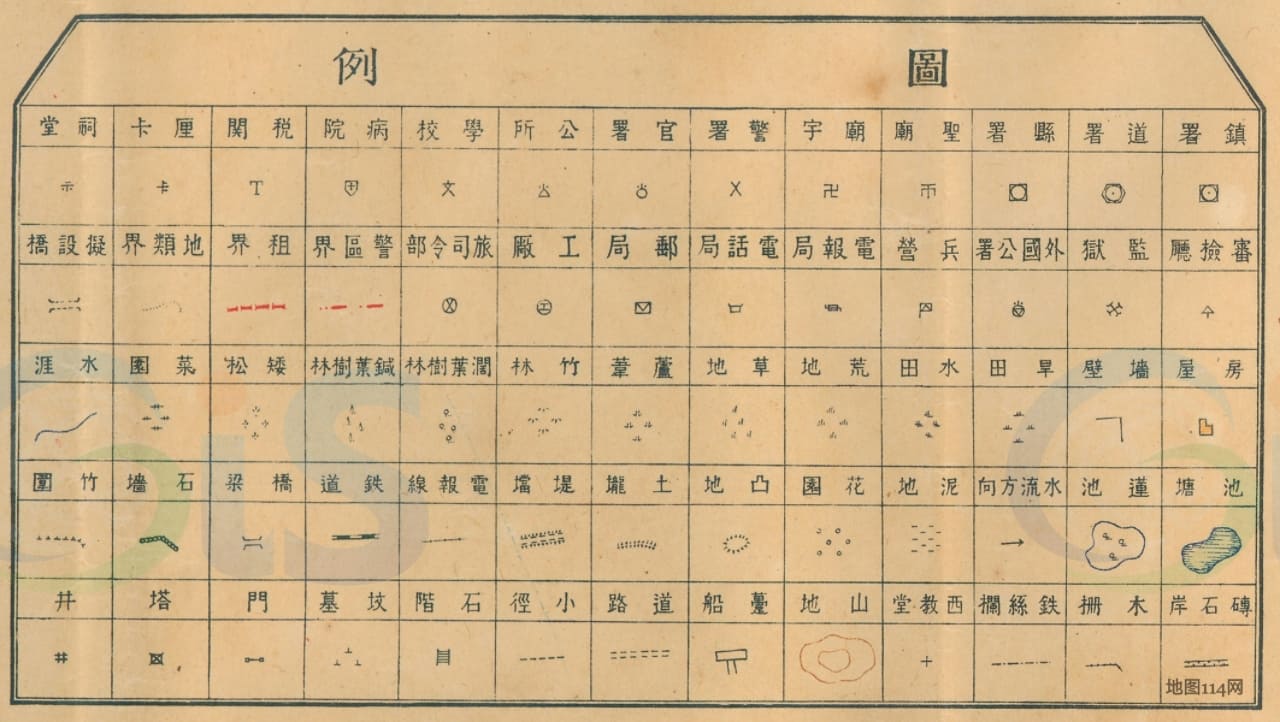 圖例
鎮署 道署 縣署 聖廟 廟宇 警署 官署 公所 學校 病院 税關 厘卡 祠堂
審撿廳 監獄 外國公署 兵營 電報局 電話局 郵局 工廠 旅司令部 警區界 租界 地類界 擬設橋
房屋 墻壁 旱田 水田 荒地 草地 蘆葦 竹林 濶葉樹林 鍼葉樹林 矮松 菜園 水涯
池塘 蓮池 水流方向 泥地 花園 凸地 土壠 堤壋 電報線 鉄道 橋梁 石墻 竹圍
磚石岸 木柵 鉄絲欄 西教堂 山地 躉船 道路 小徑 石階 坟墓 門 塔 井
地图114网